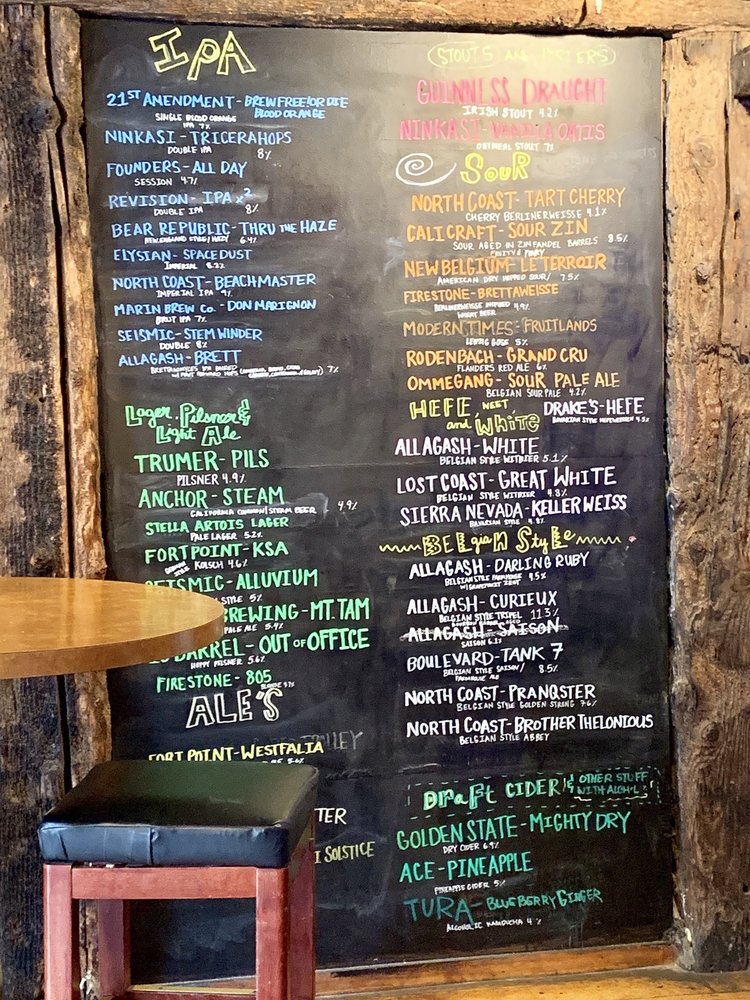 IPA
21ST AMENDMENT - BREW FREE! OR DIE
BLOOD ORANGE
SINGLE BLOOD ORANGE
IPA 7%
NINKASI - TRICERAHOPS
DOUBLE IPA 8%
FOUNDERS - ALL DAY
SESSION 4.7%
REVISION - IPA x²
DOUBLE IPA 8%
BEAR REPUBLIC - THRU THE HAZE
NEW ENGLAND STYLE / HAZY 6.4%
ELYSIAN - SPACEDUST
IMPERIAL 8.2%
NORTH COAST - BEACHMASTER
IMPERIAL IPA 9%
MARIN BREW Co. - DON MARIGNON
BRUT IPA 7%
SEISMIC - STEM WINDER
DOUBLE 8%
ALLAGASH - BRETT
BRETTANOMYCES IPA
7%
Lager, Pilsner &
Light Ale
TRUMER - PILS
PILSNER 4.9%
ANCHOR - STEAM
CALIFORNIA COMMON / STEAM BEER 4.9%
STELLA ARTOIS LAGER
PALE LAGER 5.2%
FORT POINT - KSA
GERMAN STYLE KOLSCH 4.6%
SEISMIC - ALLUVIUM
STYLE 5%
BREWING - MT. TAM
PALE ALE 5.4%
BARREL - OUT OF OFFICE
HOPPY PILSNER 5.6%
FIRESTONE - 805
BLONDE 4.7%
ALE'S
FORT POINT - WESTFALIA
ALE 5.6%
TTER
SOLSTICE
STOUTS AND PORTERS
GUINNESS DRAUGHT
IRISH STOUT 4.2%
NINKASI - VANILLA OATIS
OATMEAL STOUT 7%
SOUR
NORTH COAST - TART CHERRY
CHERRY BERLINERWEISSE 4.1%
CALICRAFT - SOUR ZIN
SOUR AGED IN ZINFANDEL BARRELS 8.5%
FRUITY & FUNKY
NEW BELGIUM - LE TERROIR
AMERICAN DRY HOPPED SOUR / 7.5%
FIRESTONE - BRETTAWEISSE
BERLINERWEISSE INSPIRED 4.9%
WHEAT BEER
MODERN TIMES - FRUITLANDS
LEIPZIG GOSE 5%
RODENBACH - GRAND CRU
FLANDERS RED ALE 6%
OMMEGANG - SOUR PALE ALE
BELGIAN SOUR PALE 4.2%
HEFE, and White
DRAKE'S - HEFE
BAVARIAN STYLE HEFEWEIZEN 4.5%
ALLAGASH - WHITE
BELGIAN STYLE WITBIER 5.1%
LOST COAST - GREAT WHITE
BELGIAN STYLE WITBIER 4.8%
SIERRA NEVADA - KELLERWEISS
BAVARIAN STYLE 4.8%
BELGIAN STYLE
ALLAGASH - DARLING RUBY
BELGIAN STYLE FARMHOUSE 4.5%
W/ GRAPEFRUIT ZEST
ALLAGASH - CURIEUX
BELGIAN STYLE TRIPEL 11.3%
BOURBON BARREL AGED
ALLAGASH - SAISON
SAISON 6.1%
BOULEVARD - TANK 7
BELGIAN STYLE SAISON / 8.5%
FARMHOUSE ALE
NORTH COAST - PRANQSTER
BELGIAN STYLE GOLDEN STRONG 7.6%
NORTH COAST - BROTHER THELONIOUS
BELGIAN STYLE ABBEY
Draft CIDER & OTHER STUFF
WITH ALCOHOL
GOLDEN STATE - MIGHTY DRY
DRY CIDER 6.9%
ACE - PINEAPPLE
PINEAPPLE CIDER 5%
TURA - BLUEBERRY GINGER
ALCOHOLIC KOMBUCHA 4%